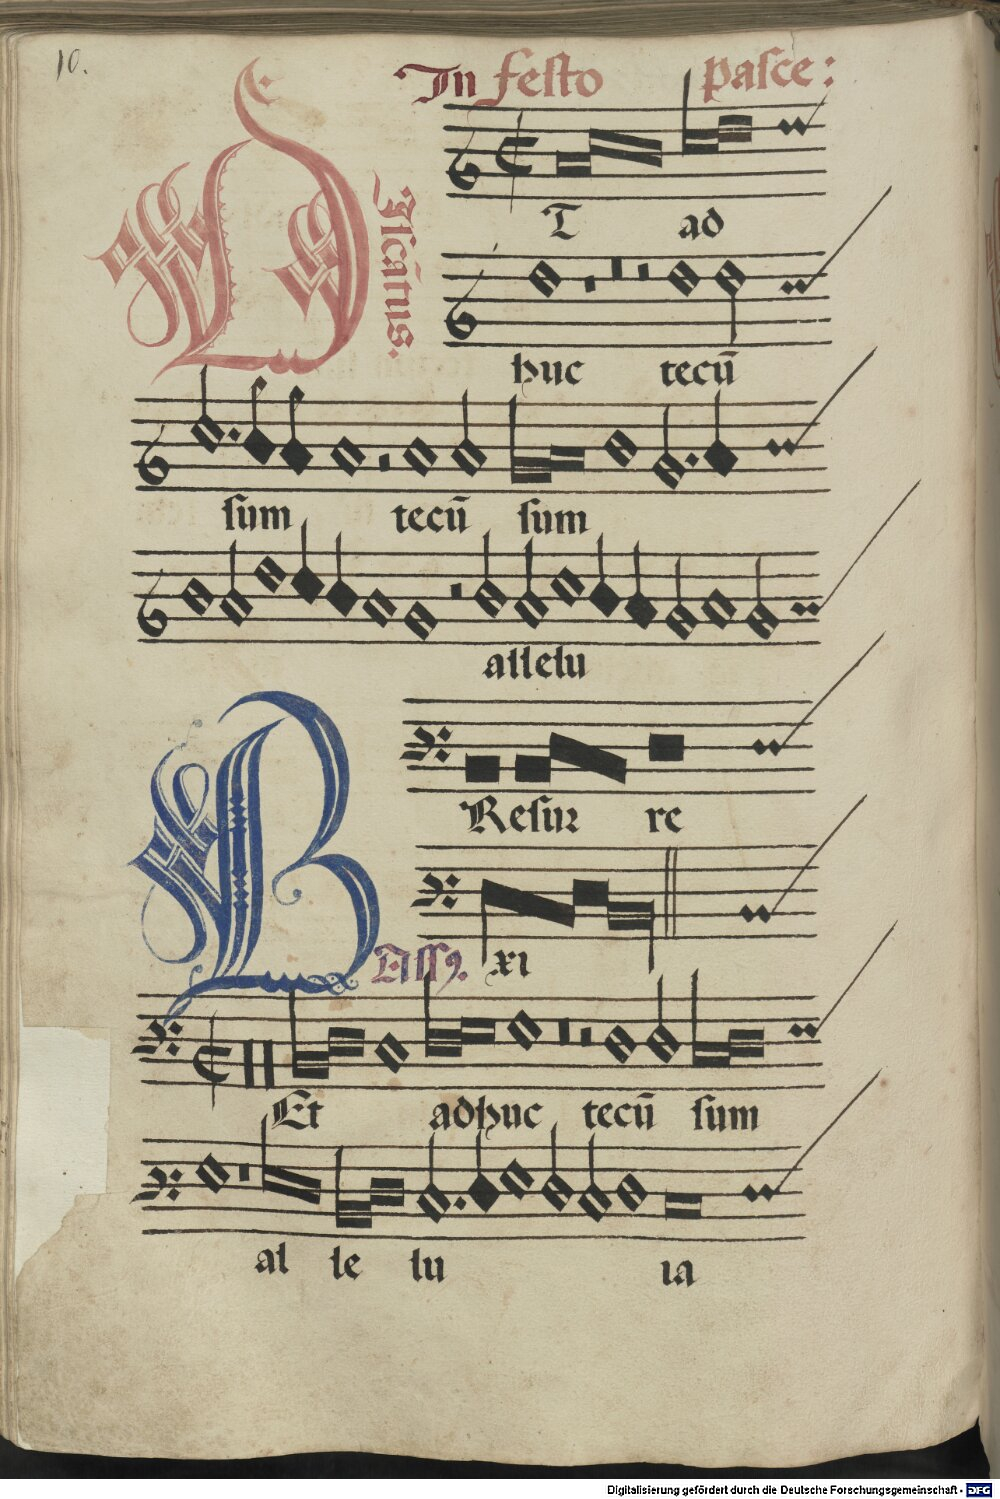 10.
In festo pasce:
Discātus.
T ad
huc tecū
sum tecū sum
allelu
Resur re
Bassꝰ. xi
Et adhuc tecū sum
al le lu ia
Digitalisierung gefördert durch die Deutsche Forschungsgemeinschaft - DFG